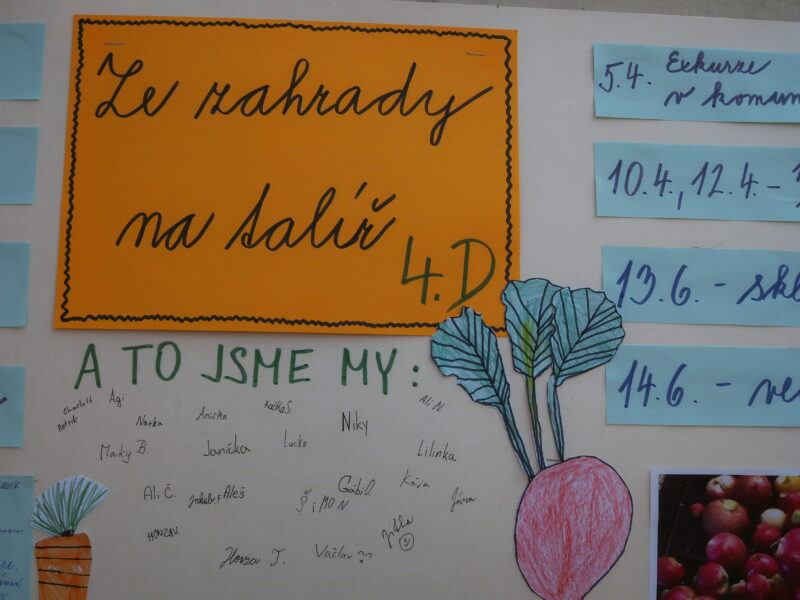 Ze zahrady
na talíř
4. D
A TO JSME MY:
Charlott
Patrik
Agi
Natka
Anička
Niky
Ali N.
Maky B.
Janička
Lucka
Lilinka
Ali Č.
Jakub F.
Aleš
ŠiMON
Gábi O.
Kája
Jáma
HONZA V.
Honza J.
Václav
Jitka
5.4. Exkurze
v komun
10.4., 12.4. -
13.6. - skl
14.6. - ve